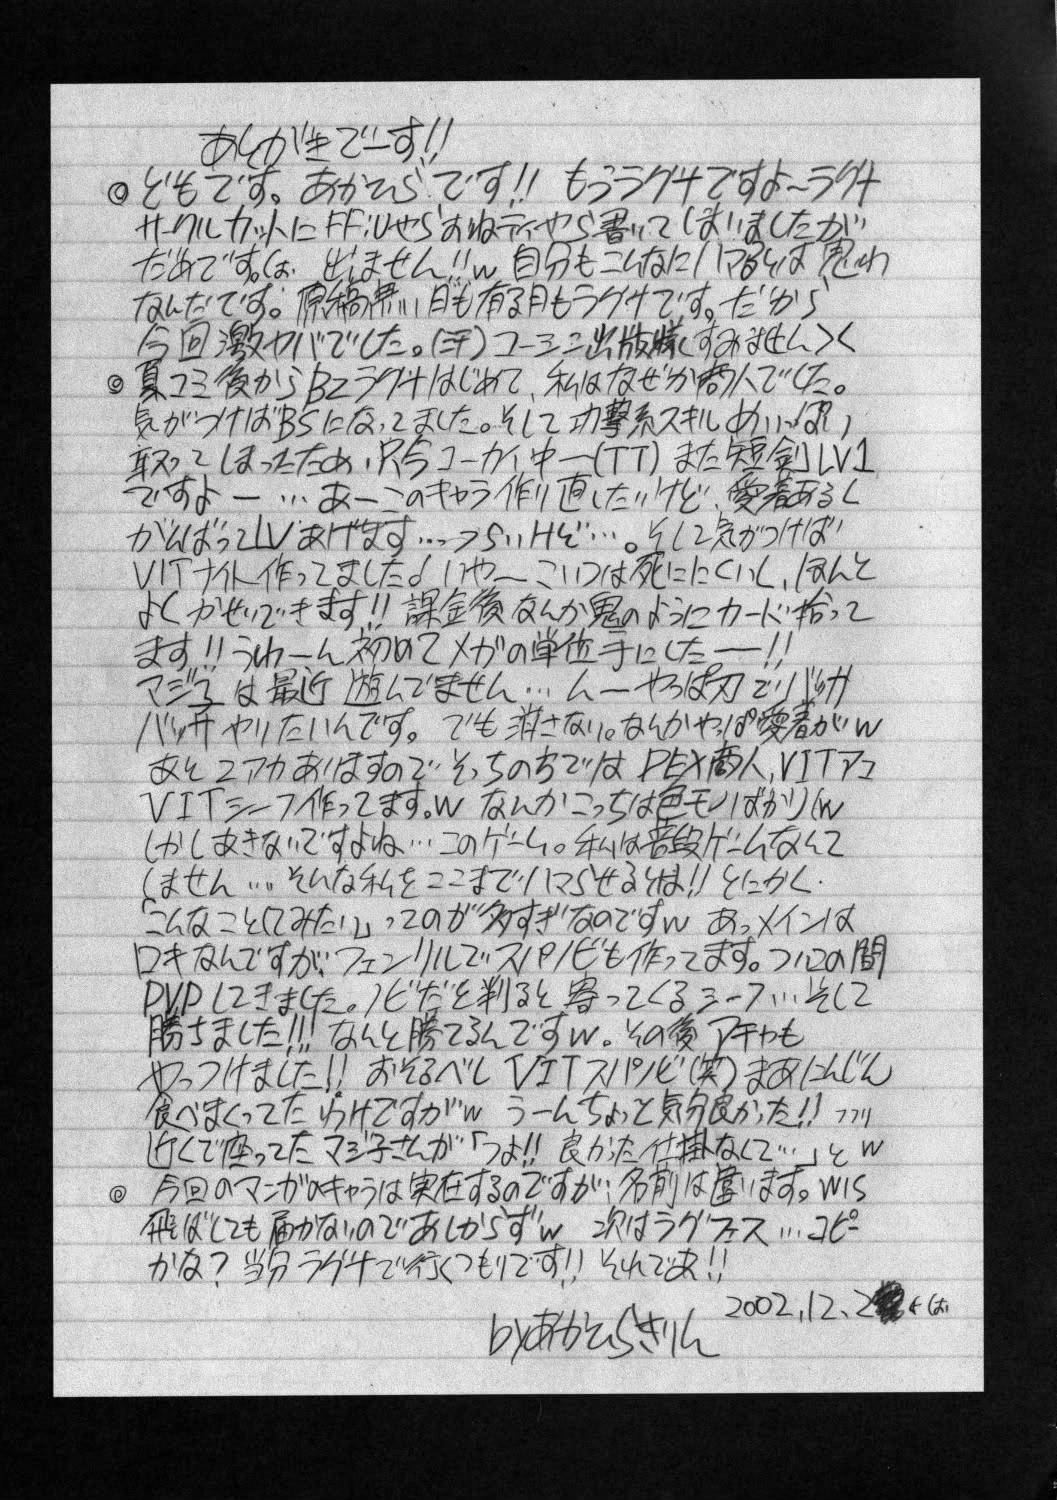 あとがきでーす!!
◎どもです。あかひらです!! もうラグナですよ～ラグナ
サークルカットにFF:Uやらおねティやら書いてしまいましたが
だめです。 出ません!!w 自分もこんなにハマるとは思わ
なんだです。原稿無い月も有る月もラグナです。だから
今回激ヤバでした。(汗)コーシン出版様すみません＞＜
◎夏コミ後からB2ラグナはじめて、私はなぜか商人でした。
気がつけばBSになってました。そして功撃系スキルめいっぱい
取ってしまったため、只今コーカイ中ー(TT) また短剣LV1
ですよー…あーこのキャラ作り直したいけど、愛着あるし
がんばってLVあげます…つらいけど…。そして気がつけば
VITナイト作ってました♩いやーこいつは死ににくいし、ほんと
よくかせいできます!! 課金後なんか鬼のようにカード拾って
ます!!うわーん初めてメガの単位手にしたー!!
マジ子は最近遊んでません…んーやっぱ刃でバッサ
バッサやりたいんです。でも消さない。なんかやっぱ愛着がw
あと2アカありますので、そっちの方ではDEX商人、VITアコ
VITシーフ作ってます。w なんかこっちは色モノばかり(w
しかしあきないですよね…このゲーム。私は普段ゲームなんて
しません…そんな私をここまでハマらせるとは!!とにかく
「こんなことしてみたい」ってのが多すぎなのですw あっメインは
ロキなんですが、フェンリルでスパノビも作ってます。ついこの間
PVPしてきました。ノビだと判ると寄ってくるシーフ…そして
勝ちました!!! なんと勝てるんですw。その後アチャも
やっつけました!! おそるべし VITスパノビ(笑)まあにんじん
食べまくってたわけですがw うーんちょっと気分良かった!!フフリ
近くで座ってたマジ子さんが「つよ!! 良かった仕掛なくて…」とw
◎今回のマンガのキャラは実在するのですが、名前は違います。WIS
飛ばしても届かないのであしからずw 次はラグフェス…コピー
かな?当分ラグナで行くつもりです!! それであ!!
2002,12,2
byあかひらきりん